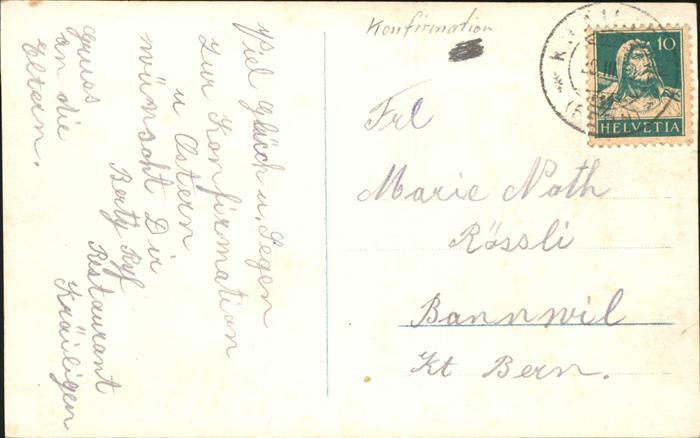 Konfirmation
Viel Glück u. Segen
zur Konfirmation
u Ostern
wünscht Dir
Berty Ryf
Ristaurant
Kräiligen
Gruss
an die
Eltern.
10
HELVETIA
Frl
Marie Noth
Rössli
Bannwil
Kt Bern.